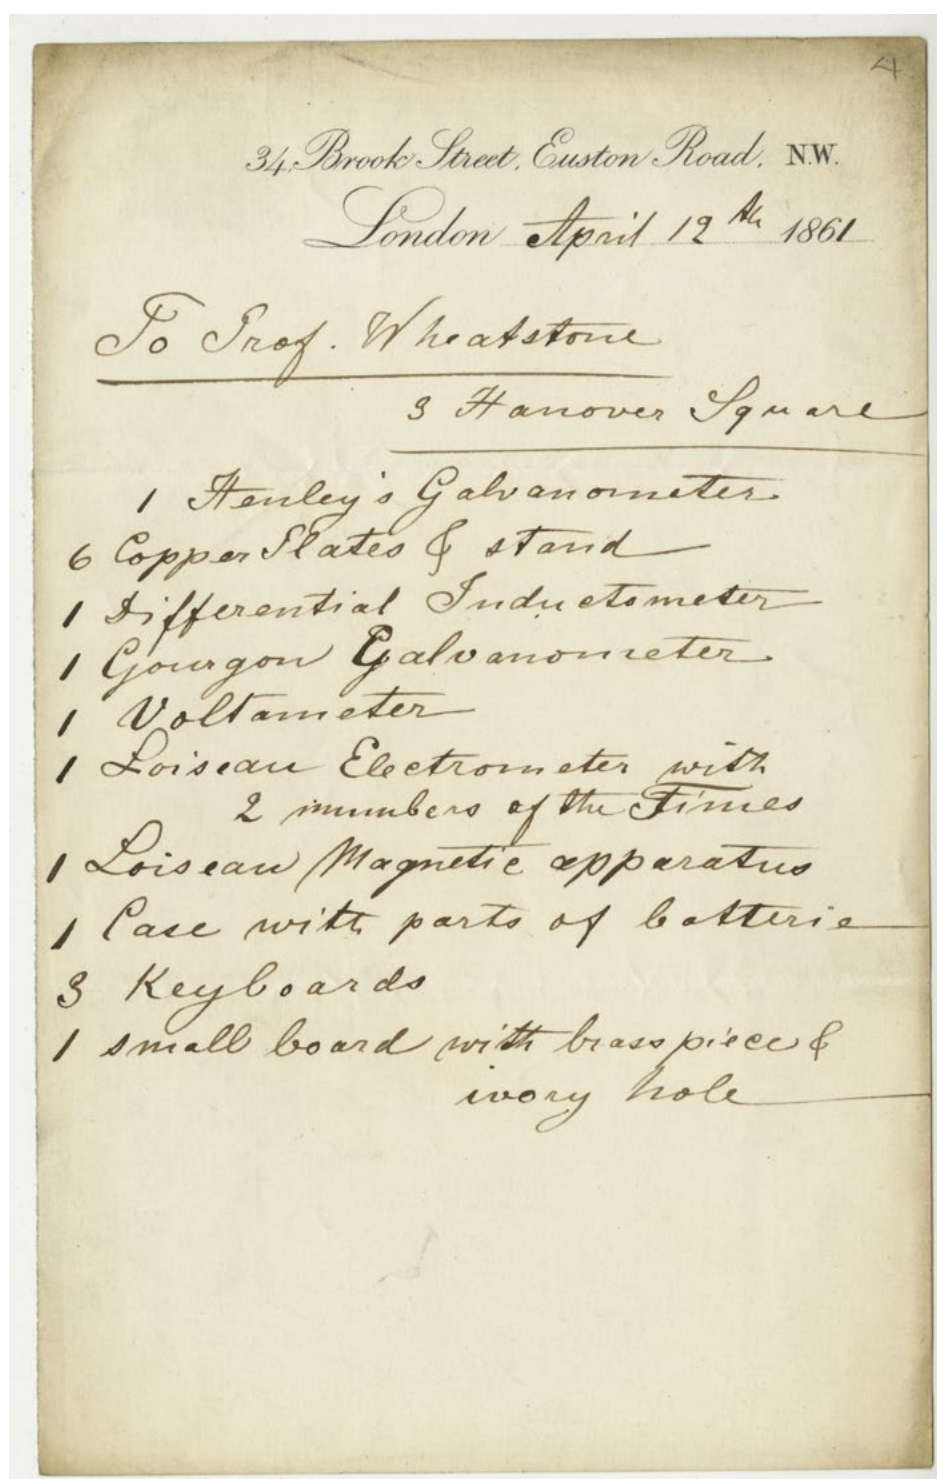 4
34, Brook Street, Euston Road, N.W.
London April 12th 1861
To Prof. Wheatstone
3 Hanover Square
1 Henley's Galvanometer
6 Copper Plates & stand
1 Differential Inductometer
1 Gourgon Galvanometer
1 Voltameter
1 Loiseau Electrometer with
2 numbers of the Times
1 Loiseau Magnetic apparatus
1 Case with parts of batterie
3 Keyboards
1 small board with brass piece &
ivory hole